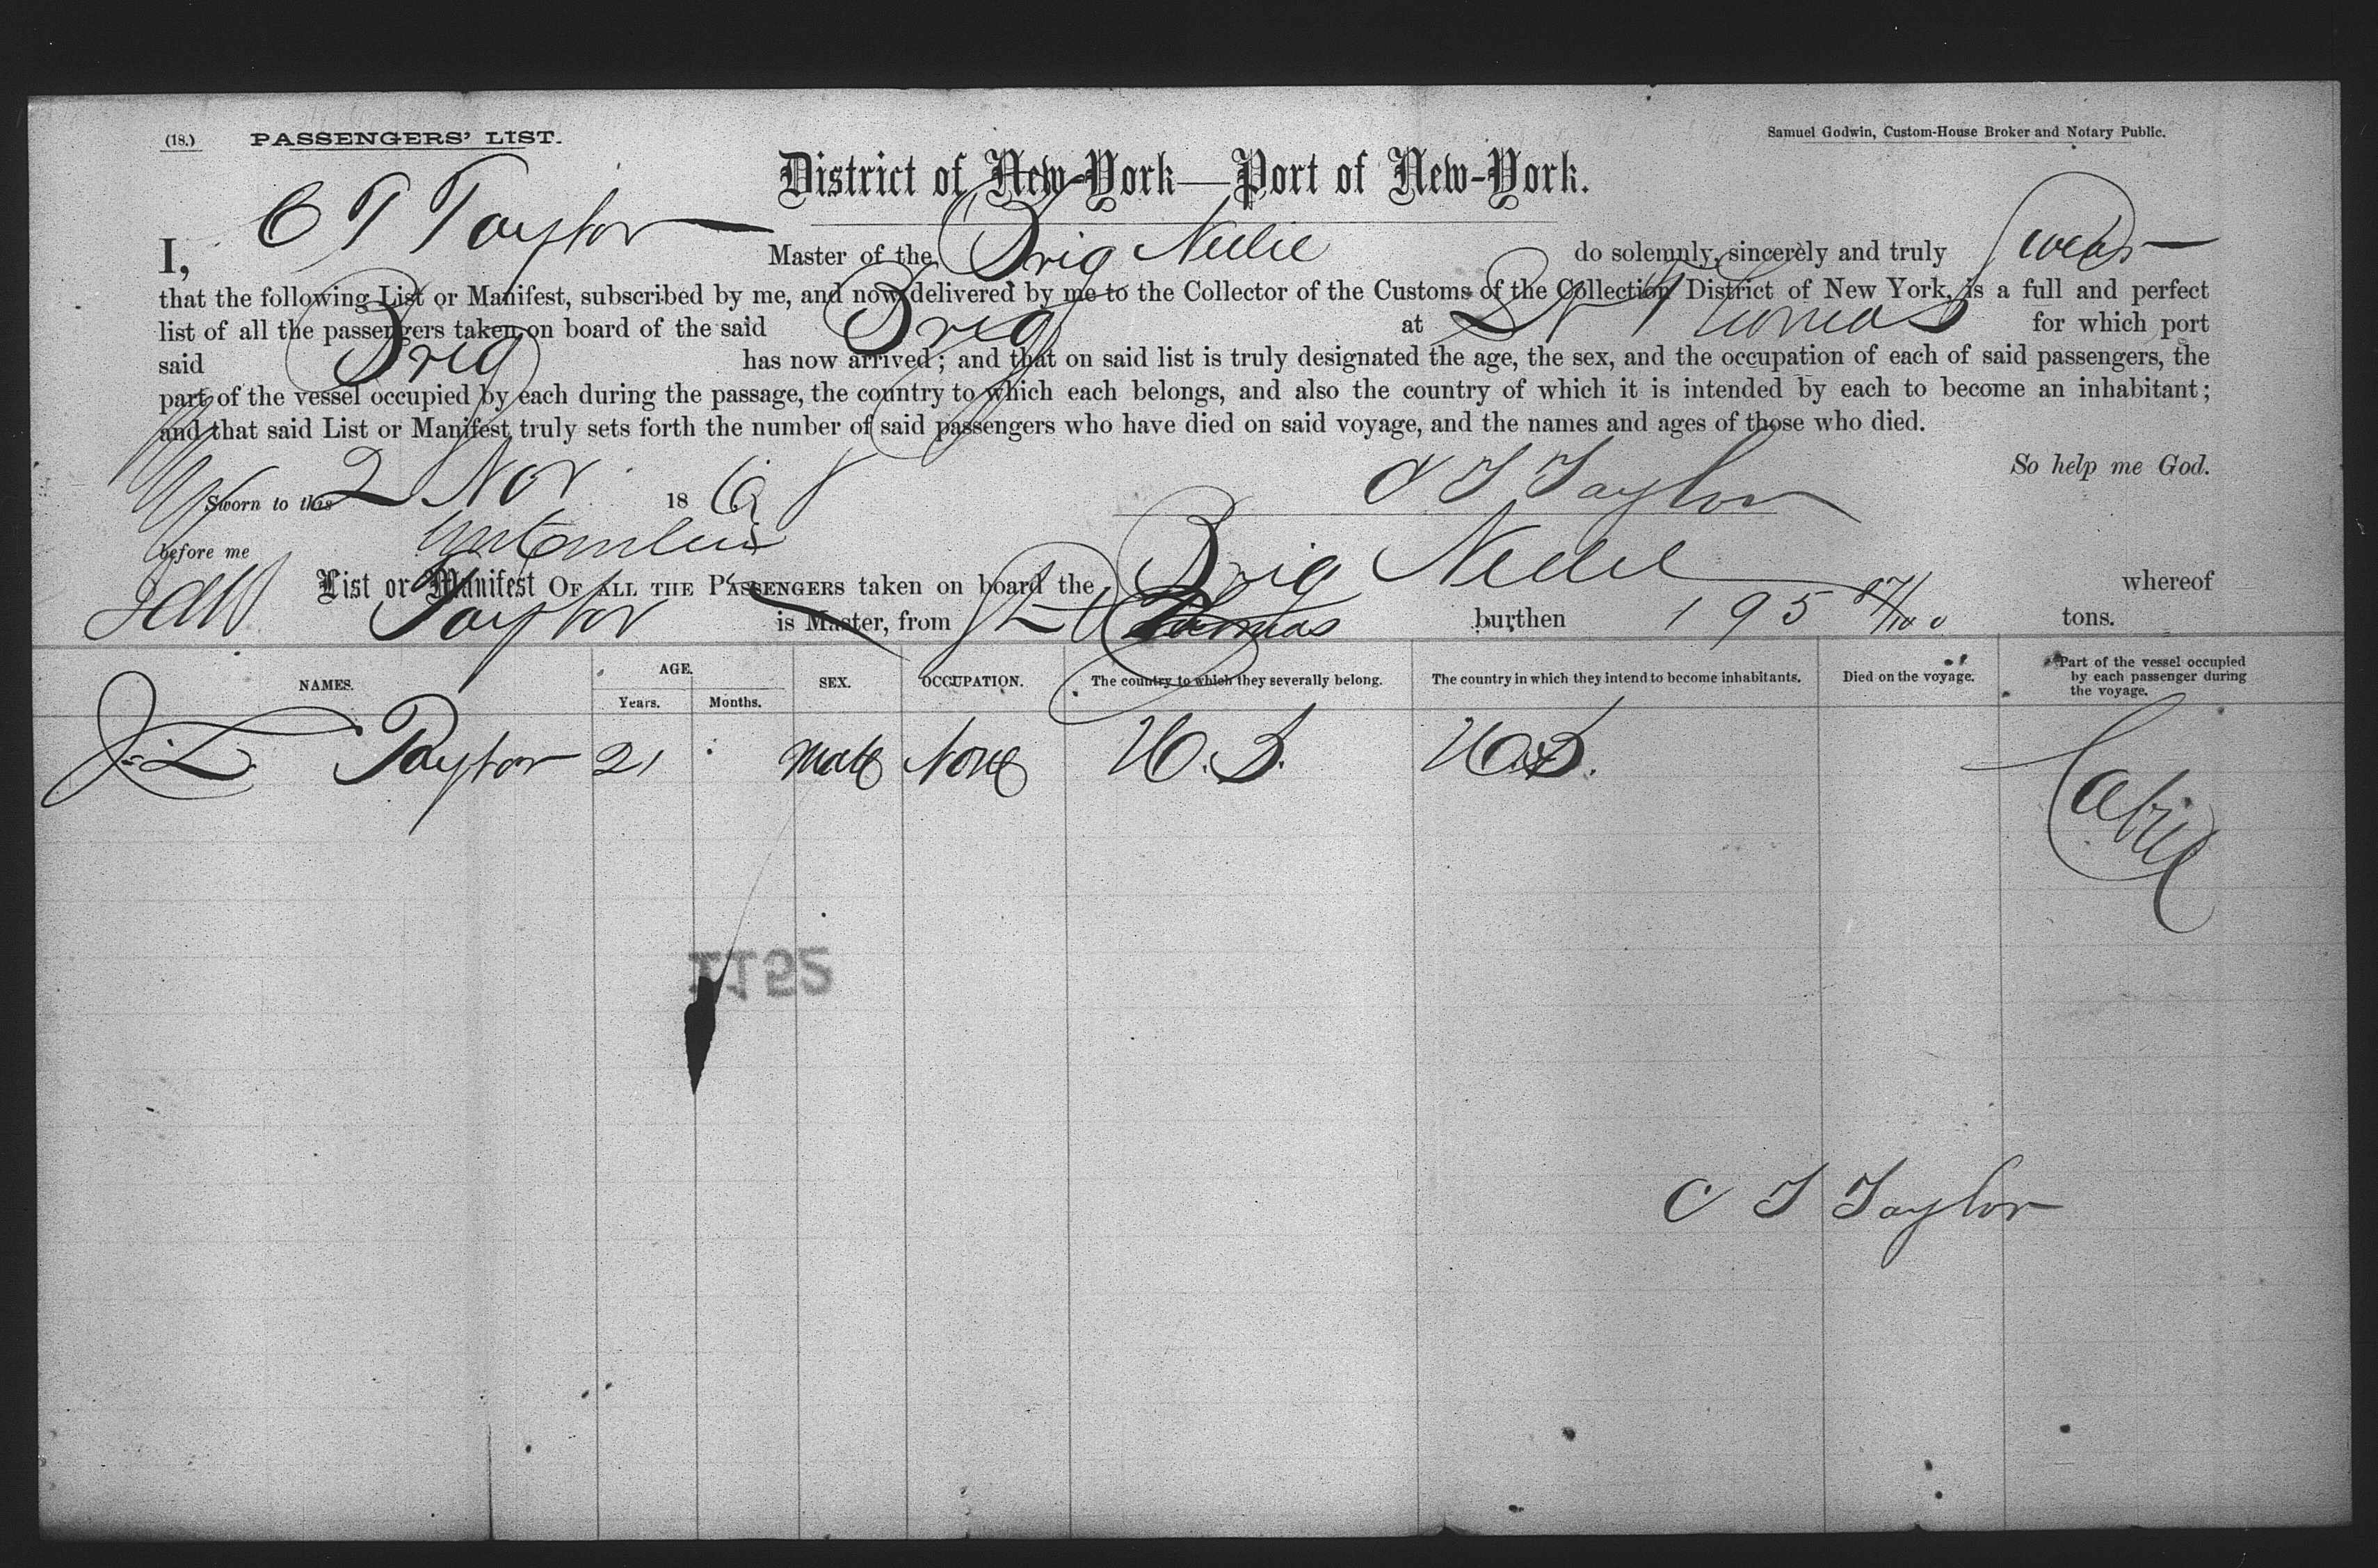 (18.) PASSENGERS' LIST. Samuel Godwin, Custom-House Broker and Notary Public.
District of New-York—Port of New-York.
I, C T Taylor Master of the Brig Nellie do solemnly, sincerely and truly swear
that the following List or Manifest, subscribed by me, and now delivered by me to the Collector of the Customs of the Collection District of New York, is a full and perfect
list of all the passengers taken on board of the said Brig at St Thomas for which port
said Brig has now arrived; and that on said list is truly designated the age, the sex, and the occupation of each of said passengers, the
part of the vessel occupied by each during the passage, the country to which each belongs, and also the country of which it is intended by each to become an inhabitant;
and that said List or Manifest truly sets forth the number of said passengers who have died on said voyage, and the names and ages of those who died.
So help me God.
Sworn to this 2 Nov 186 C T Taylor
before me
List or Manifest OF ALL THE PASSENGERS taken on board the Brig Nellie whereof
Taylor is Master, from St Thomas burthen 195 97/100 tons.
NAMES. AGE. Years. Months. SEX. OCCUPATION. The country to which they severally belong. The country in which they intend to become inhabitants. Died on the voyage. Part of the vessel occupied by each passenger during the voyage.
J. L. Taylor 21 Male None U.S. U.S. Cabin
1152
C T Taylor